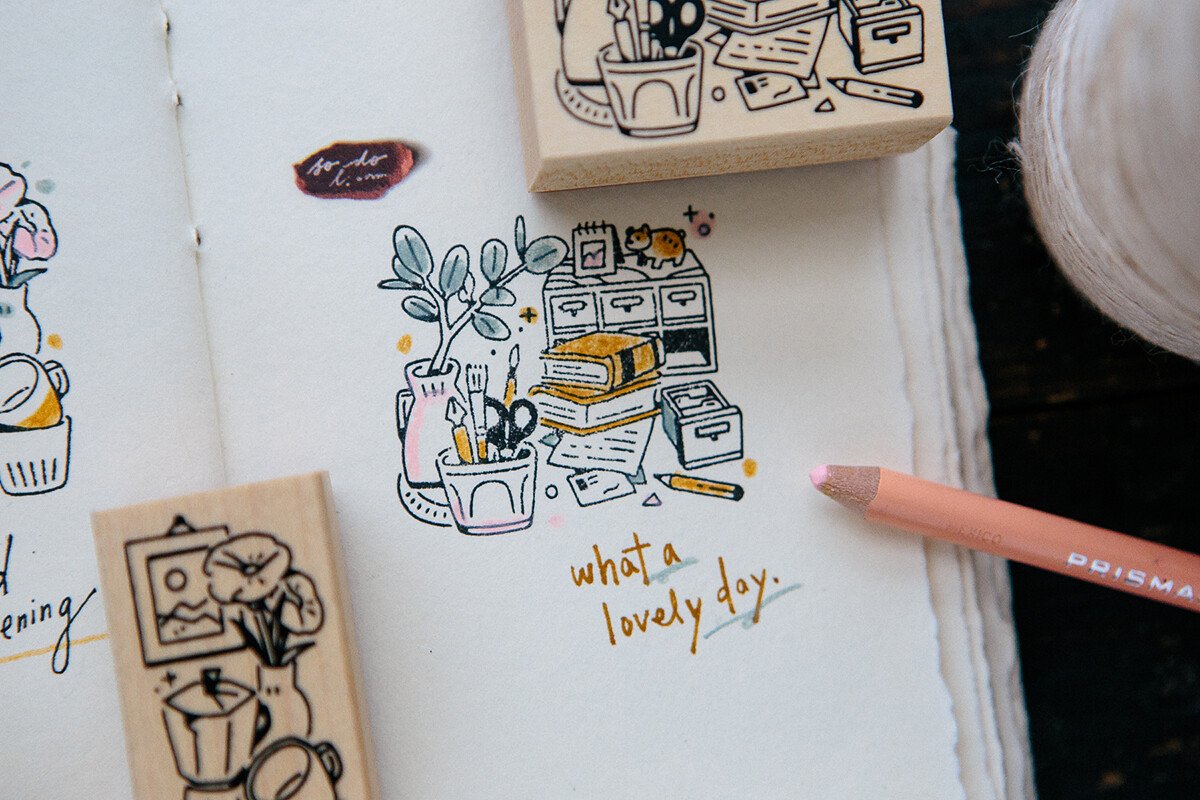 so do
what a
lovely day.
ening
PRISMA